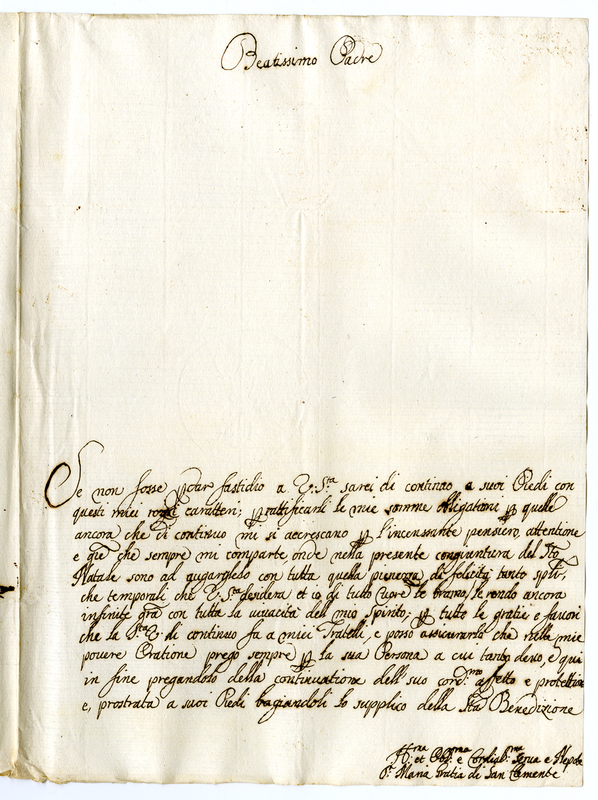 Beatissimo Padre
Se non fosse p dar fastidio a V. S.ta sarei di continuo a suoi Piedi con
questi miei rozzi caratteri; p rattificarli le mie somme obligationi p quelle
ancora che di continuo mi si accrescano p l'incessante pensiero, attentione
e che sempre mi comparte, onde nella presente congiuntura del S.to
Natale sono ad augurarglielo con tutta quella pienezza di felicità tanto sp.li,
che temporali che V. S.ta desidera et io di tutto core le bramo, le rendo ancora
infinite gra con tutta la vivacità dell mio spirito; p tutte le gratie e favori
che la S.tà V. di continuo fa a miei Fratelli, e posso assicurarla che nella mie
povere Oratione prego sempre p la sua Persona a cui tanto devo, e qui
in fine pregandolo della continuatione dell suo cord.mo affetto e protettione
e, prostrata a suoi Piedi bagiandoli lo supplico della S.ta Benedizione
H.ma et Obl.ma e Cordial.ma Serva e Nepote
S.r Maria Gratia di San Clemente